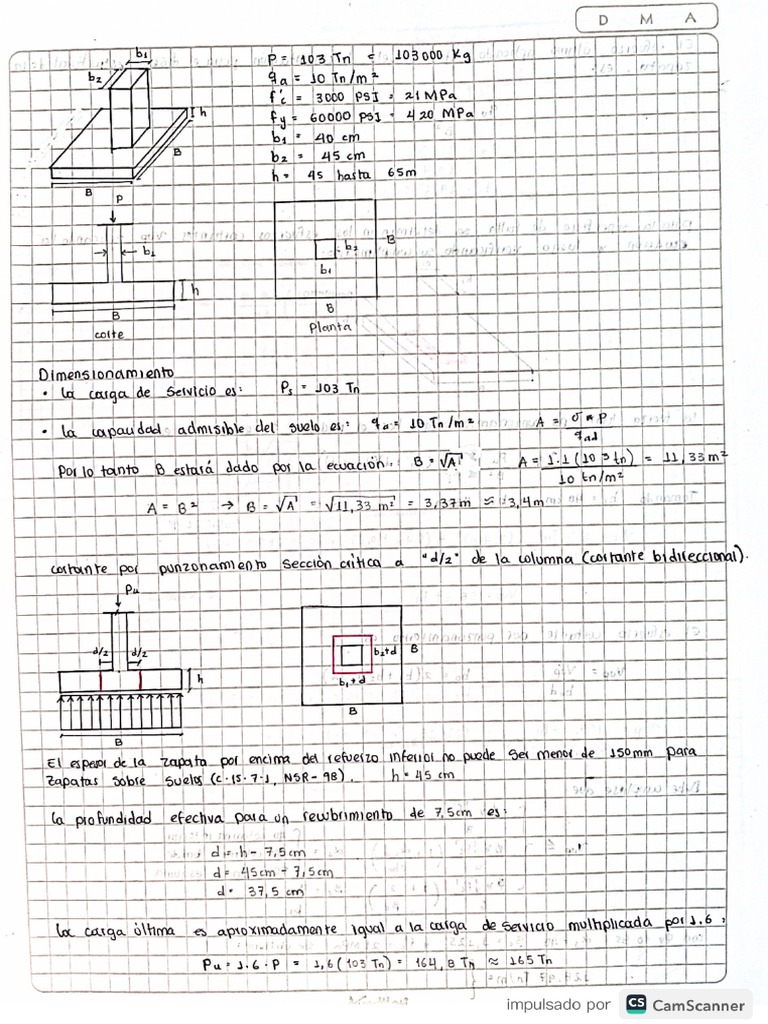 D M A
b1
b2
h
B
B
P = 103 Tn = 103000 Kg
qa = 10 Tn/m²
f'c = 3000 PSI = 21 MPa
fy = 60000 PSI = 420 MPa
b1 = 40 cm
b2 = 45 cm
h = 45 hasta 65m
P
b1
h
B
corte
b2
b1
B
B
Planta
Dimensionamiento
• la carga de servicio es: Ps = 103 Tn
• la capacidad admisible del suelo es: qa = 10 Tn/m² A = σ * P / qad
Por lo tanto B estará dado por la ecuación: B = √A A = 1.1 (103 tn) / 10 tn/m² = 11,33 m²
A = B² → B = √A = √11,33 m² = 3,37m ≈ 3,4m
cortante por punzonamiento sección crítica a "d/2" de la columna (cortante bidireccional).
Pu
d/2 d/2
h
B
b2+d
b1+d
B
B
El espesor de la zapata por encima del refuerzo inferior no puede ser menor de 150mm para
zapatas sobre suelos (C.15.7.1, NSR-98). h = 45 cm
la profundidad efectiva para un recubrimiento de 7,5cm es:
d = h - 7,5cm
d = 45cm - 7,5cm
d = 37,5 cm
la carga última es aproximadamente igual a la carga de servicio multiplicada por 1.6:
Pu = 1.6 · P = 1,6 (103 Tn) = 164,8 Tn ≈ 165 Tn
impulsado por CS CamScanner